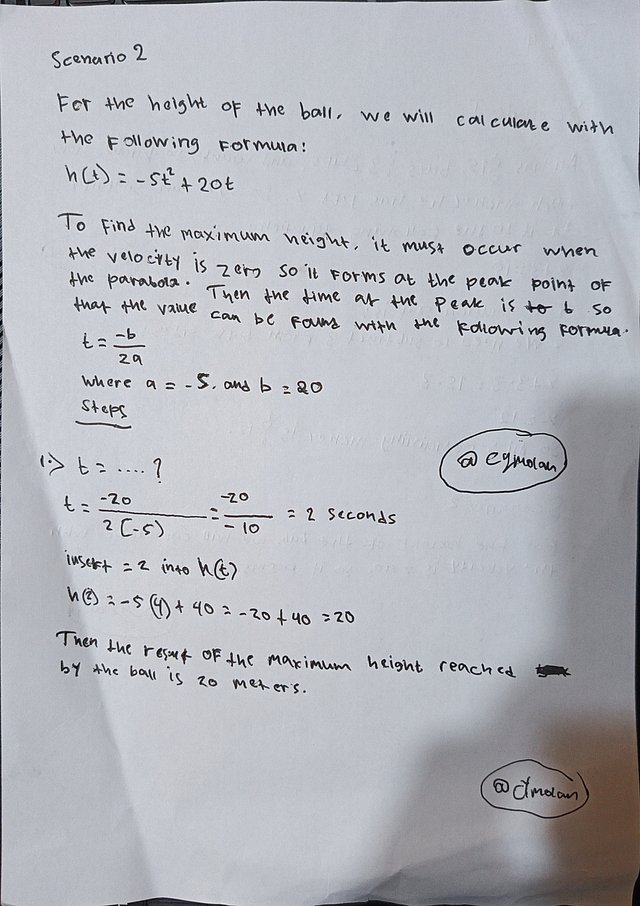 Scenario 2
For the height of the ball, we will calculate with
the Following Formula:
h(t) = -5t² + 20t
To Find the maximum height, it must occur when
the velocity is zero so it Forms at the peak point of
the parabola. Then the time at the peak is to so
that the value can be Found with the Following Formula.
t = -b/2a
where a = -5. and b = 20
Steps
1.> t = .... ?
@eymolan
t = -20/2(-5) = -20/-10 = 2 seconds
insert = 2 into h(t)
h(2) = -5(4) + 40 = -20 + 40 = 20
Then the result of the maximum height reached
by the ball is 20 meters.